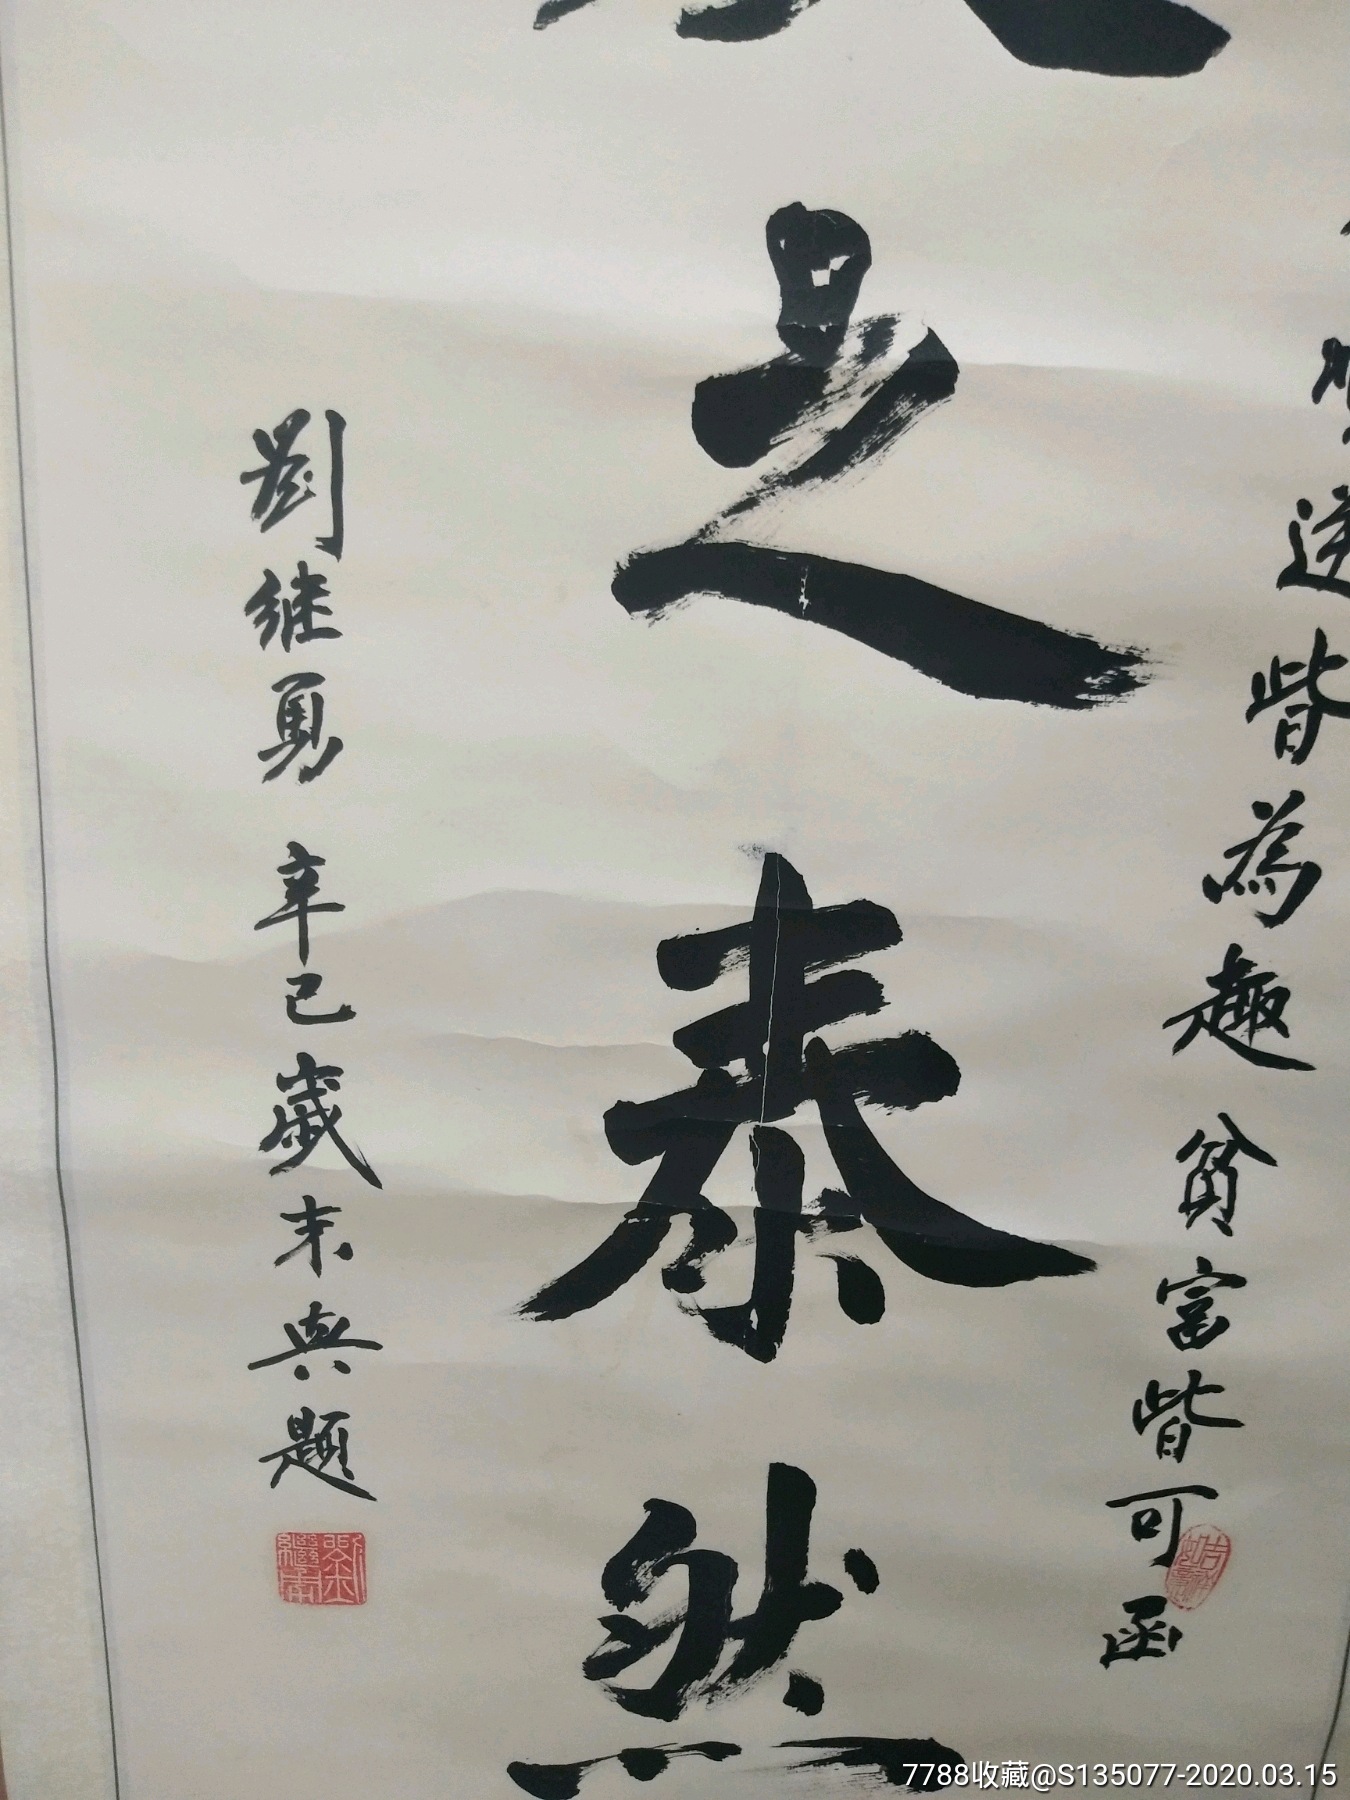 順逆皆為趣 貧富皆可函
之泰然
劉继勇 辛巳歲末興題
7788收藏@S135077-2020.03.15